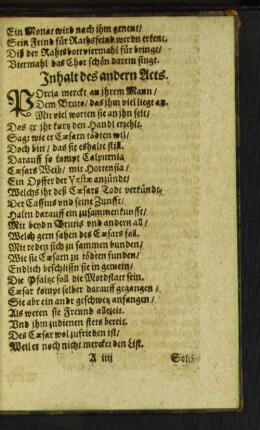 Ein Monat wird nach ihm genent/
Sein Feind für Rathsfeind werdn erkent.
Diß der Rahtsbott viermahl für bringt/
Viermahl das Chor schön darein singt.
Inhalt des andern Acts.
POrcia merckt an jhrem Mann/
Dem Bruto/ das jhm viel liegt an.
Mit viel worten sie an jhn seit/
Das er jhr kurz den Handl erzehlt.
Sagt wie er Cæsarn tödten wil/
Doch bitt/ das sie es halte still.
Darauff so kompt Calpurnia
Cæsars Weib/ mit Hortensia/
Ein Opffer der Vestæ anzündt/
Welchs ihr deß Cæsars Todt verkündt.
Der Cassius vnd seine Zunfft/
Halen darauff ein zusammenkunfft/
Mit beydn Brutis vnd andern all/
Welch gern sahen des Cæsars fall.
Mit reden sich zu sammen bunden/
Wie sie Cæsarn zu tödten funden/
Endlich beschlissn sie in gemein/
Die Pfaltze soll die Mordstatt sein.
Cæsar kompt selber darauff gegangen/
Sie abr ein andr geschwetz anfangen/
Als weren sie Freund allezeit.
Vnd ihm zudienen stets bereit.
Des Cæsar wol zufrieden ist/
Weil er noch nicht mercket den List.
A iiij
Solch